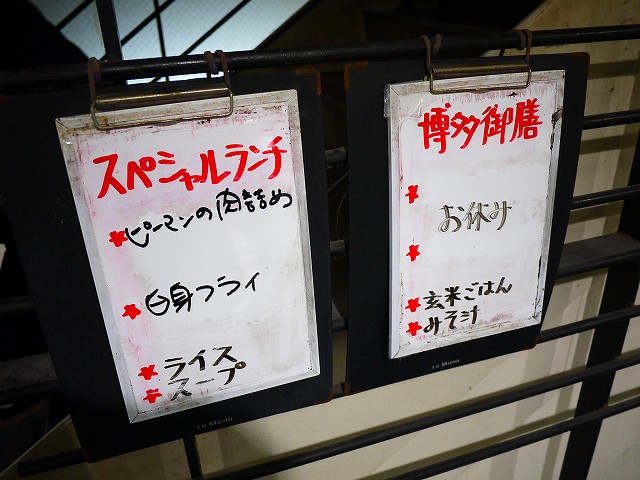 スペシャルランチ
ピーマンの肉詰め
白身フライ
ライス
スープ
博多御膳
お休み
玄米ごはん
みそ汁